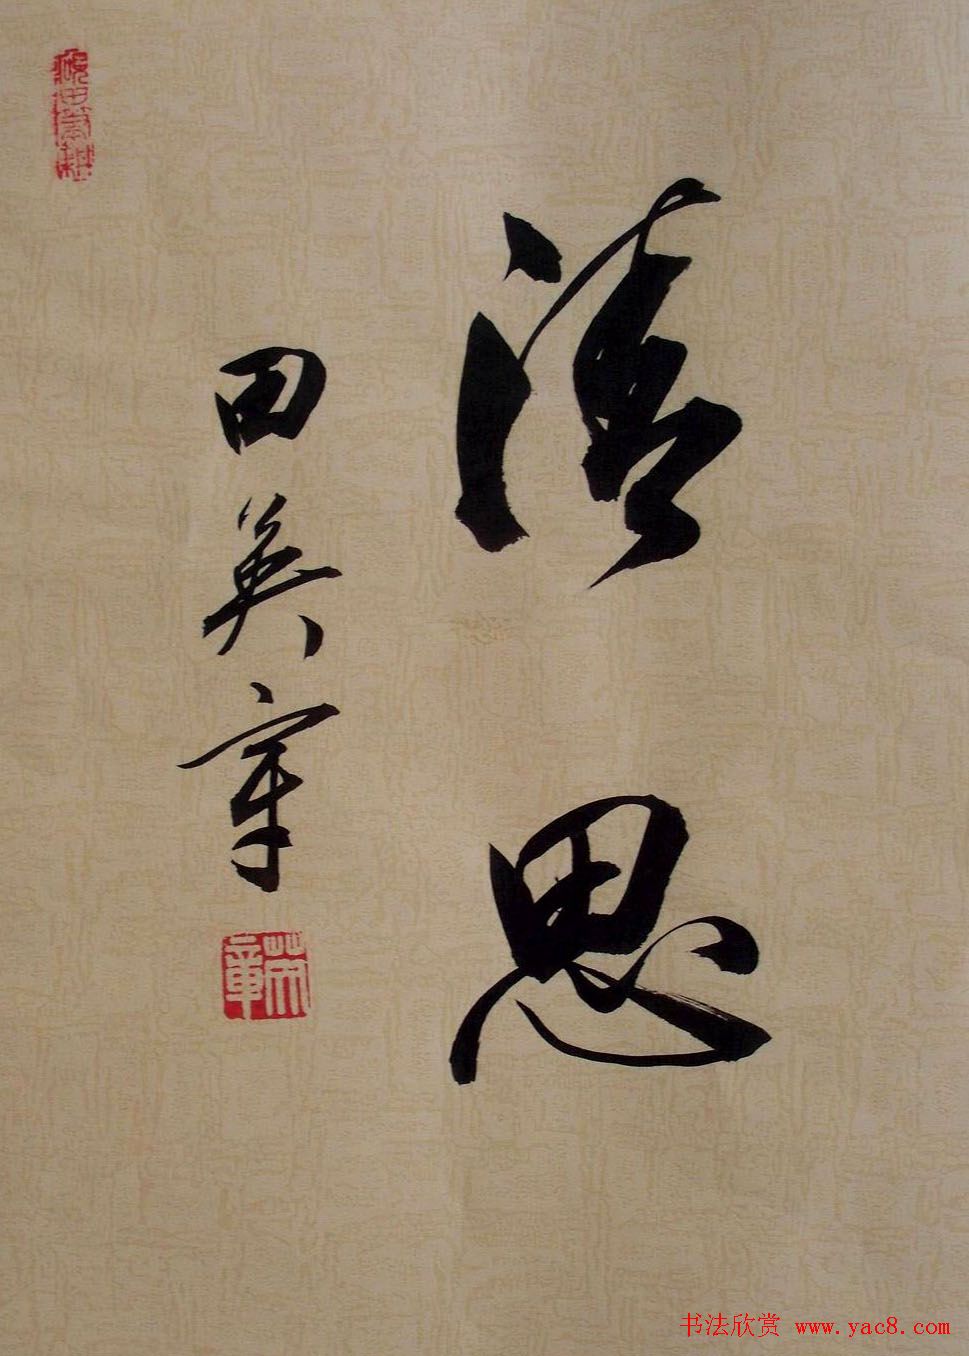 清思
田英章
英章
书法欣赏 www.yac8.com